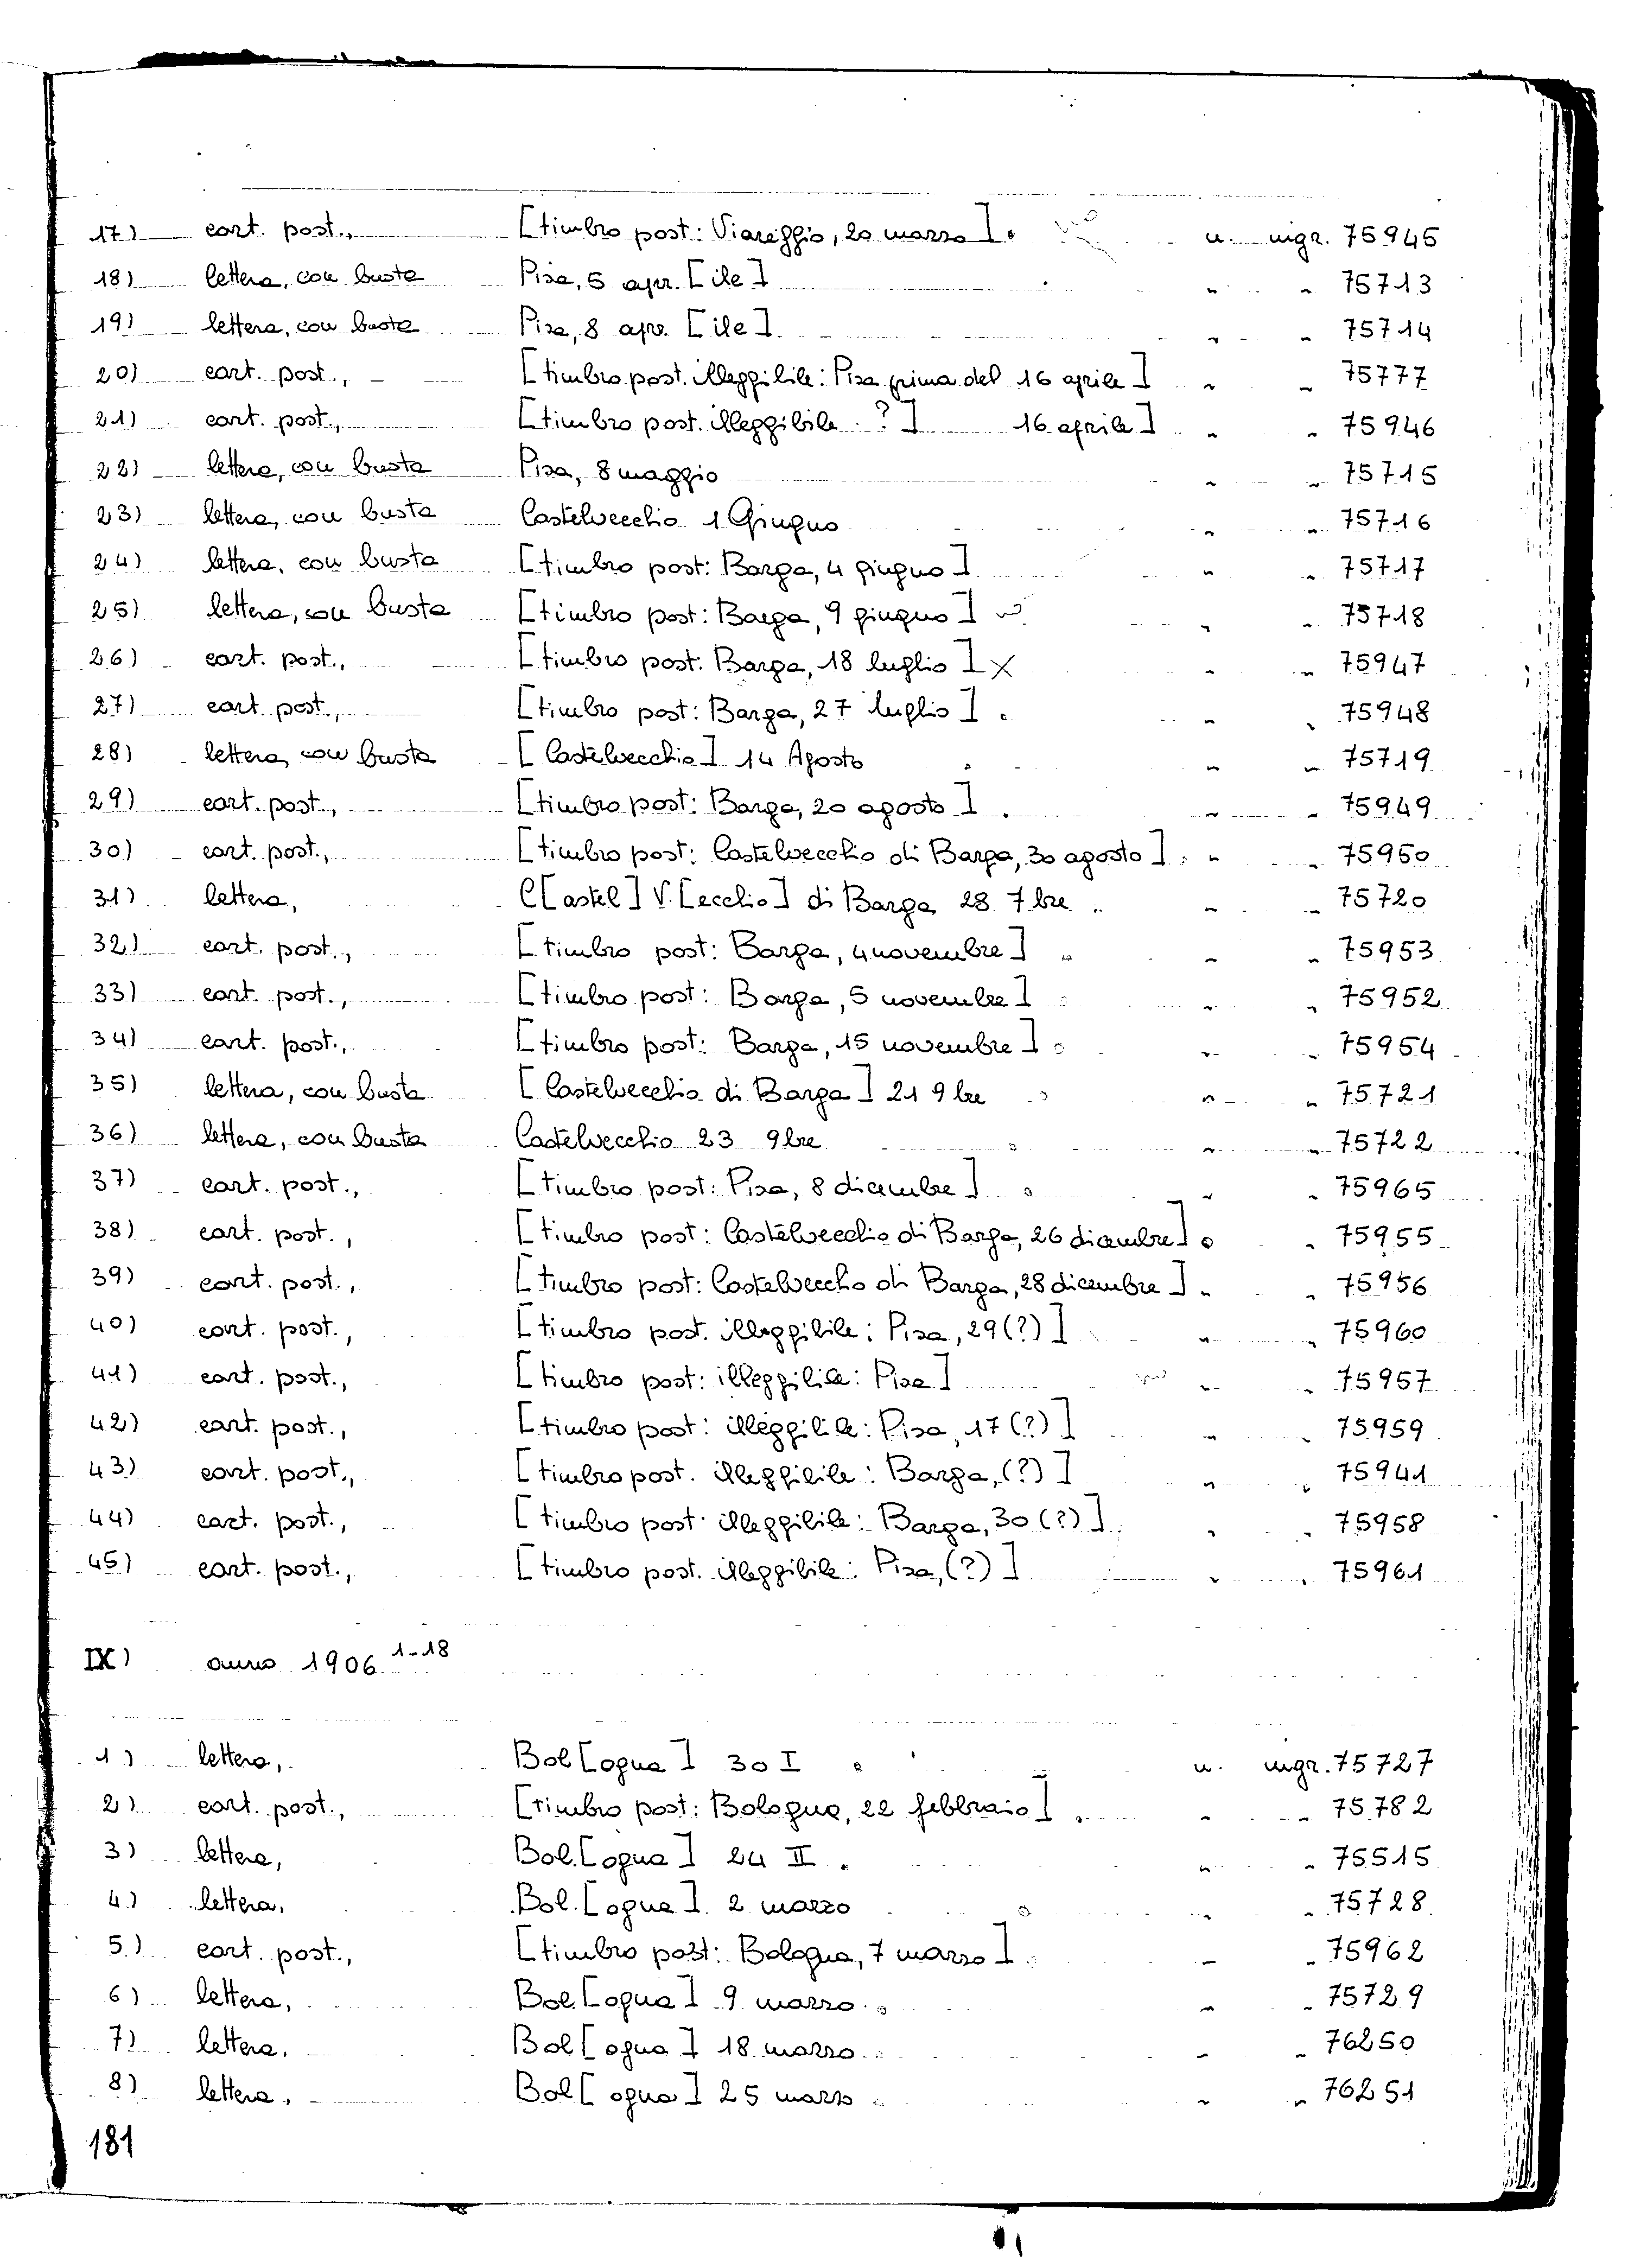 17) cart. post., [timbro post: Viareggio, 20 marzo]. n. ingr. 75945
18) lettera, con busta Pisa, 5 apr. [ile] " " 75713
19) lettera, con busta Pisa, 8 apr. [ile] " " 75714
20) cart. post., [timbro post. illeggibile: Pisa prima del 16 aprile] " " 75777
21) cart. post., [timbro post. illeggibile ?] 16 aprile] " " 75946
22) lettera, con busta Pisa, 8 maggio " " 75715
23) lettera, con busta Castelvecchio 1 Giugno " " 75716
24) lettera, con busta [timbro post: Barga, 4 giugno] " " 75717
25) lettera, con busta [timbro post: Barga, 9 giugno] " " 75718
26) cart. post., [timbro post: Barga, 18 luglio] X " " 75947
27) cart. post., [timbro post: Barga, 27 luglio]. " " 75948
28) lettera, con busta [Castelvecchio] 14 Agosto " " 75719
29) cart. post., [timbro post: Barga, 20 agosto]. " " 75949
30) cart. post., [timbro post: Castelvecchio di Barga, 30 agosto]. " " 75950
31) lettera, C[astel] V.[ecchio] di Barga 28 7bre. " " 75720
32) cart. post., [timbro post: Barga, 4 novembre] " " 75953
33) cart. post., [timbro post: Barga, 5 novembre] " " 75952
34) cart. post., [timbro post: Barga, 15 novembre] " " 75954
35) lettera, con busta [Castelvecchio di Barga] 21 9bre " " 75721
36) lettera, con busta Castelvecchio 23 9bre " " 75722
37) cart. post., [timbro post: Pisa, 8 dicembre] " " 75965
38) cart. post., [timbro post: Castelvecchio di Barga, 26 dicembre] " 75955
39) cart. post., [timbro post: Castelvecchio di Barga, 28 dicembre]. " 75956
40) cart. post., [timbro post. illeggibile: Pisa, 29(?)] " " 75960
41) cart. post., [timbro post: illeggibile: Pisa] " " 75957
42) cart. post., [timbro post: illeggibile: Pisa, 17(?)] " " 75959
43) cart. post., [timbro post. illeggibile: Barga, (?)] " " 75941
44) cart. post., [timbro post. illeggibile: Barga, 30(?)] " " 75958
45) cart. post., [timbro post. illeggibile: Pisa, (?)] " " 75961
IX) anno 1906 1-18
1) lettera, Bol[ogna] 30 I n. ingr. 75727
2) cart. post., [timbro post: Bologna, 22 febbraio]. " " 75782
3) lettera, Bol.[ogna] 24 II. " " 75515
4) lettera, Bol.[ogna]. 2 marzo " " 75728
5) cart. post., [timbro post: Bologna, 7 marzo]. " " 75962
6) lettera, Bol.[ogna] 9 marzo. " " 75729
7) lettera, Bol[ogna] 18 marzo. " " 76250
8) lettera, Bol[ogna] 25 marzo " " 76251
181